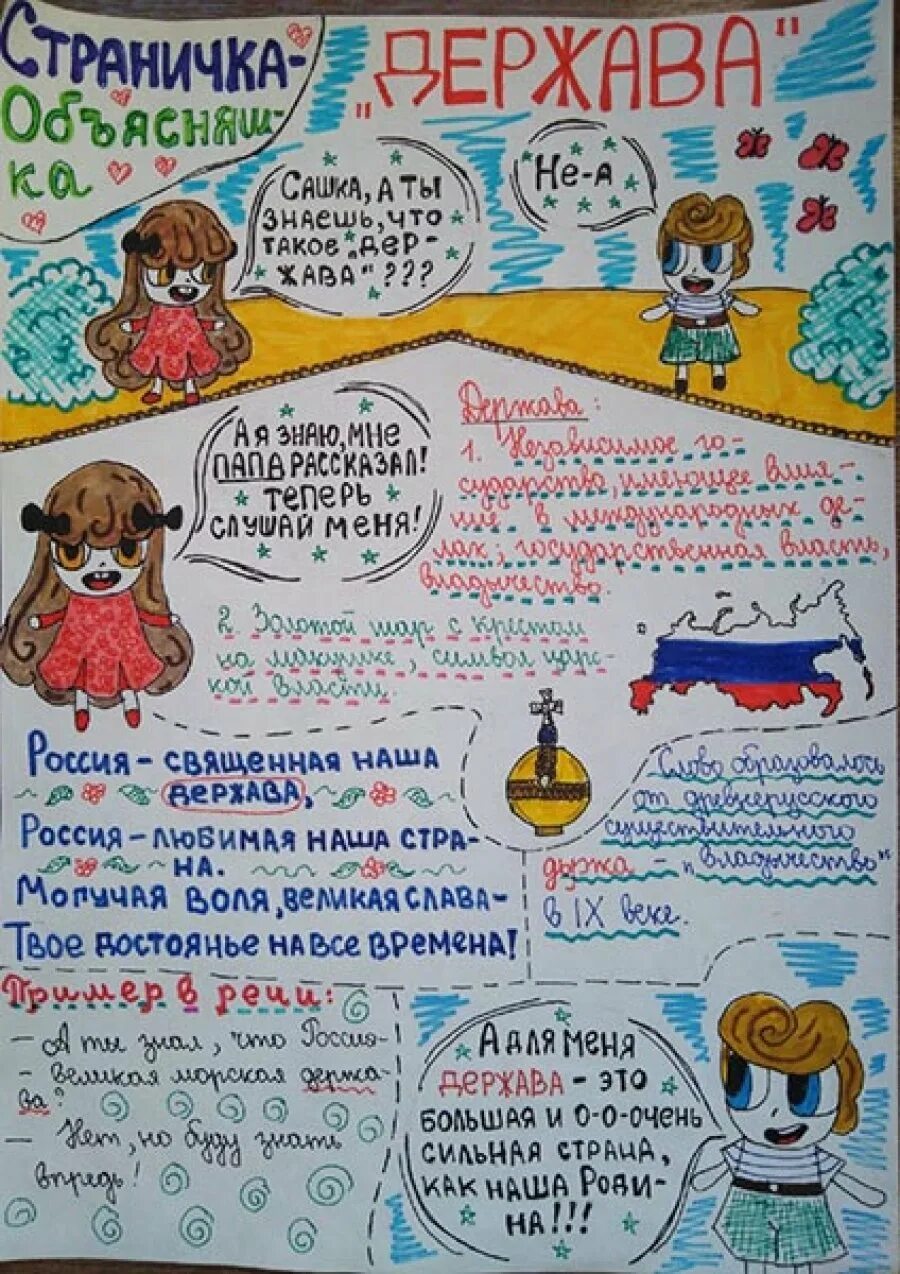 Страничка-
Объясняш-
ка
"Держава"
Сашка, а ты
знаешь, что
такое „дер-
жава" ???
Не-а
А я знаю, мне
папа рассказал!
Теперь
слушай меня!
Держава:
1. Независимое го-
сударство, имеющее влия-
ние в международных де-
лах; государственная власть,
владычество.
2. Золотой шар с крестом
на макушке, символ царс-
кой власти.
Россия - священная наша
держава,
Россия - любимая наша стра-
на.
Могучая воля, великая слава-
Твое достоянье на все времена!
Слово образовалось
от древнерусского
существительного
дьржа - „владычество"
в IX веке.
Пример в речи:
- А ты знал, что Россия-
- великая морская держа-
ва?
- Нет, но буду знать
впредь!
А для меня
держава - это
большая и о-о-очень
сильная страна,
как наша Роди-
на!!!